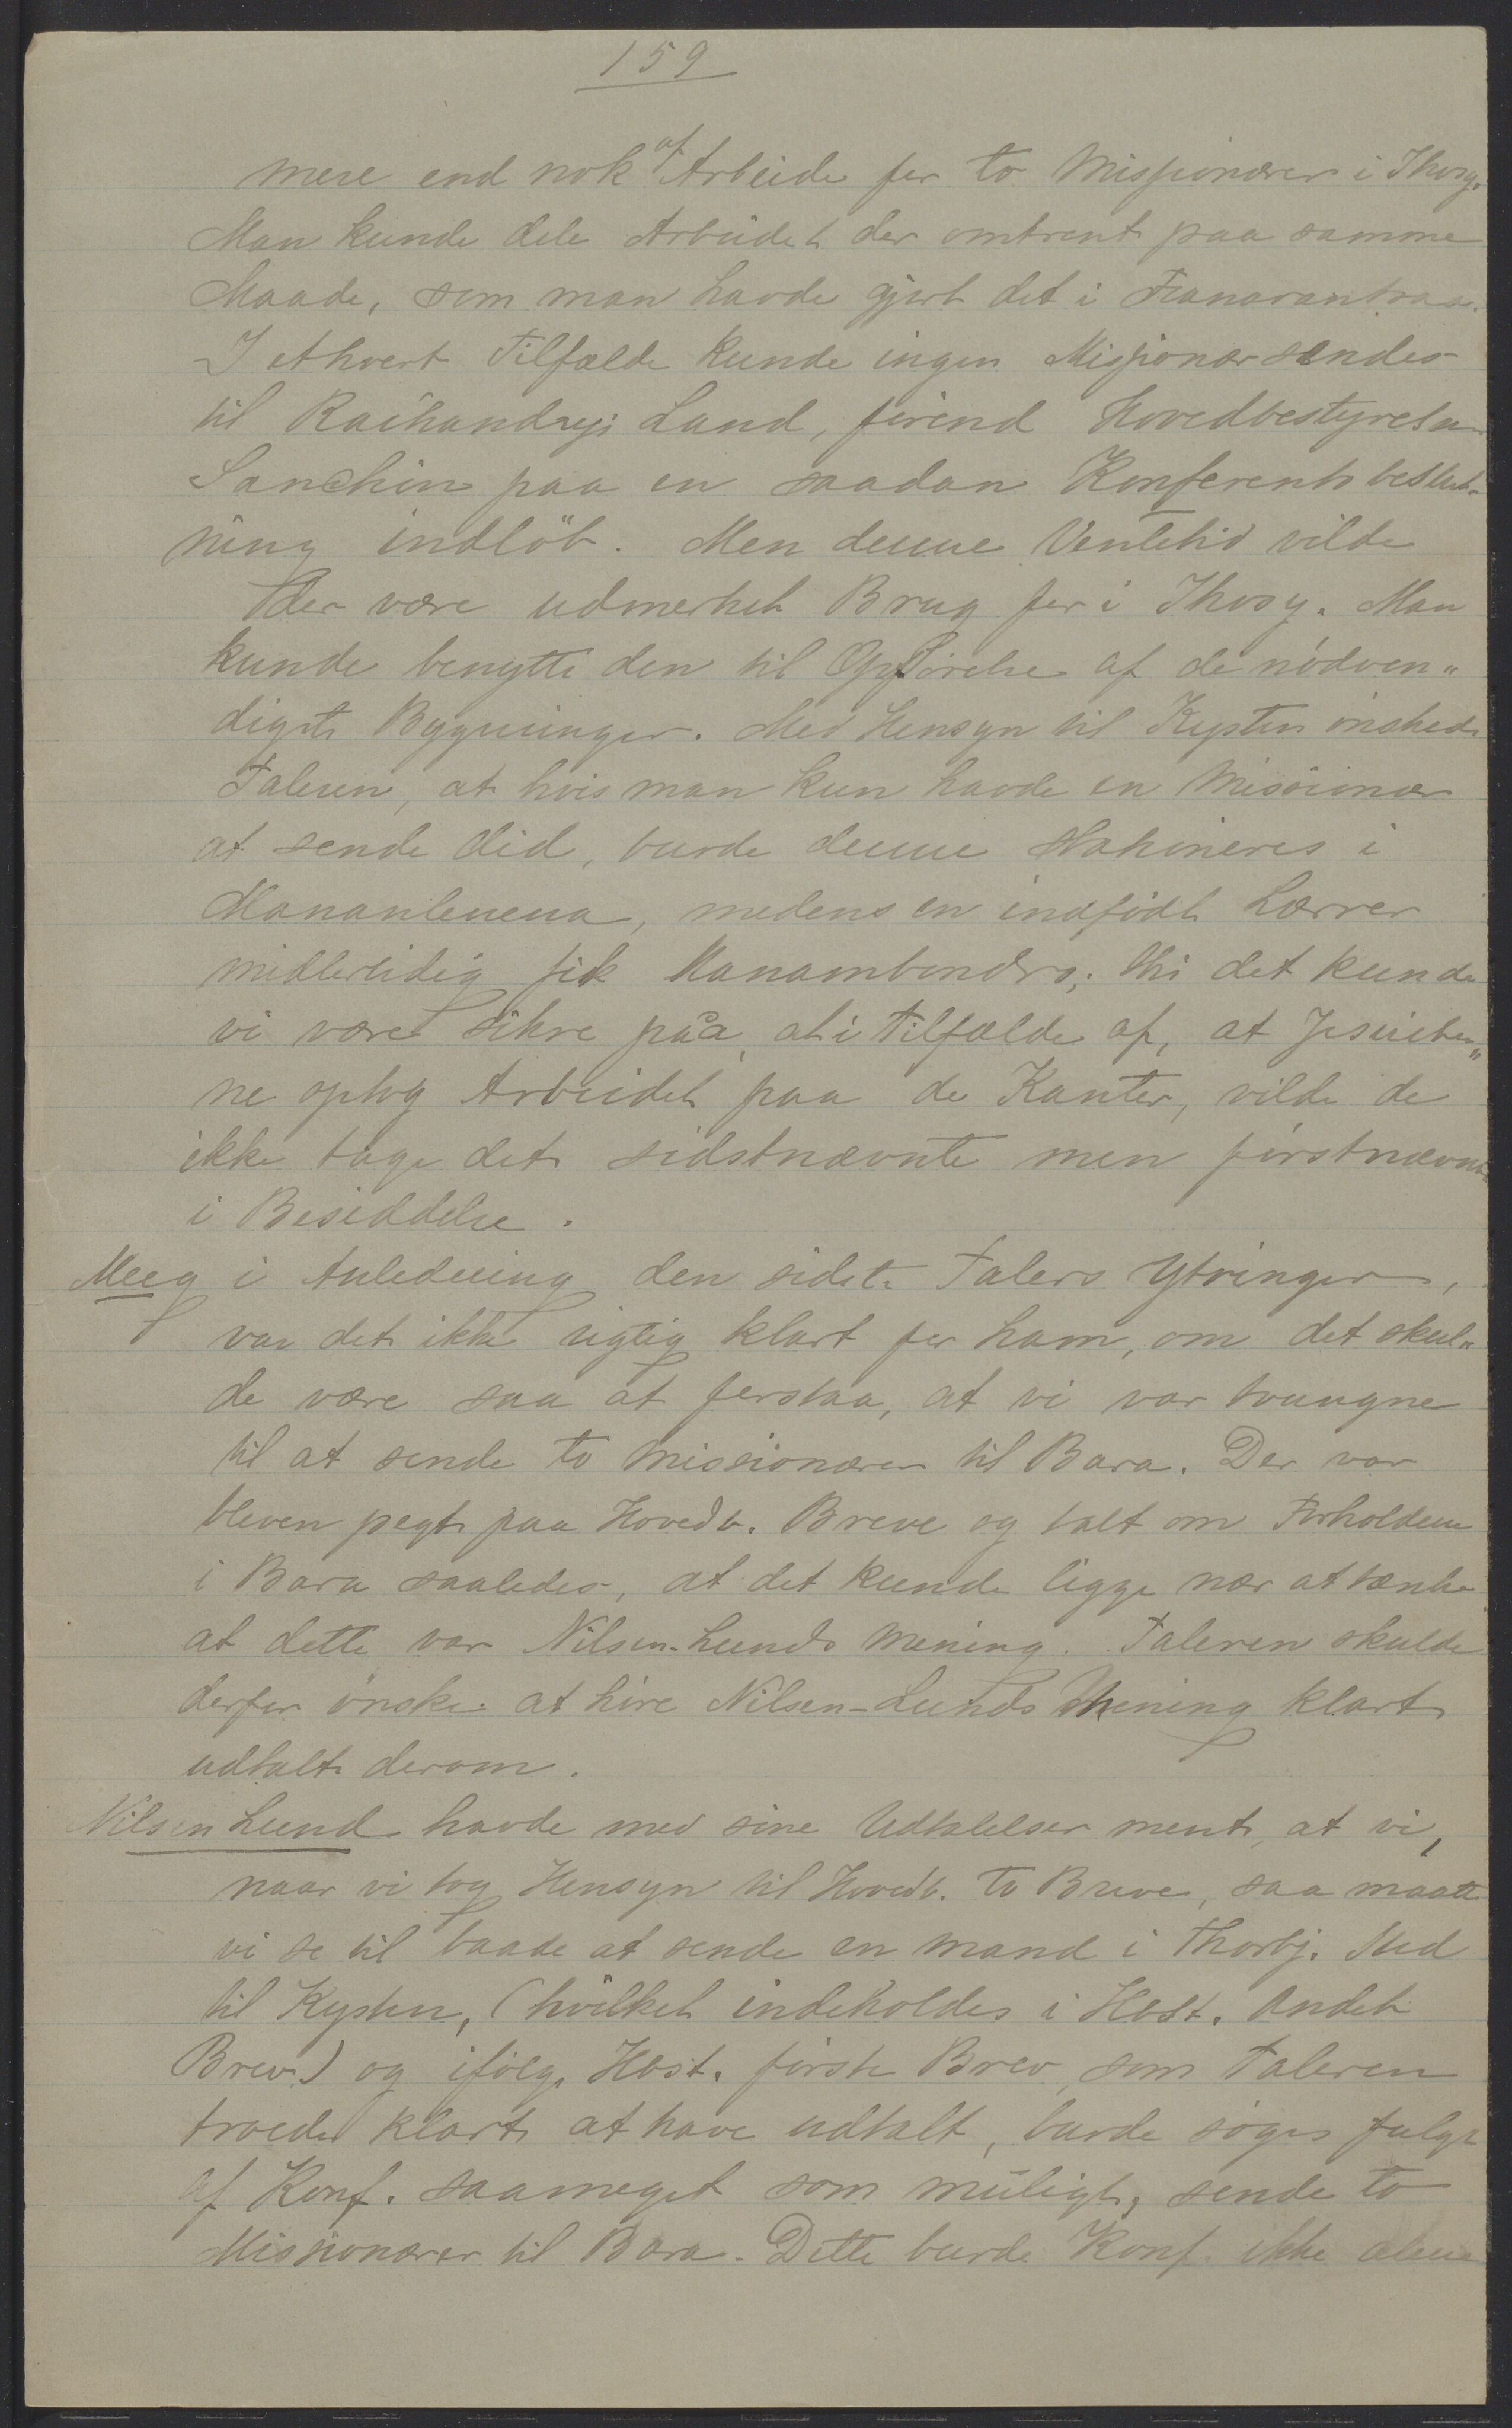 159
mere end nok af Arbeide for to Missionærer i Ihosy.
Man kunde dele Arbeidet der omtrent paa samme
Maade, som man havde gjort det i Fianarantsoa.
I ethvert Tilfælde kunde ingen Missionær sendes
til Raihandry's Land, førend Hovedbestyrelsens
Sanction paa en saadan Konferentsbeslut-
ning indløb. Men denne Ventetid vilde
der være udmerket Brug for i Ihosy. Man
kunde benytte den til Opførelse af de nødven-
digste Bygninger. Med Hensyn til Kysten ønskede
Taleren, at hvis man kun havde en Missionær
at sende did, burde denne stationeres i
Manantenena, medens en indfødt Lærer
midlertidig fik Manambondro; thi det kunde
vi være sikre paa, at i Tilfælde af, at Jesuiter-
ne optog Arbeidet paa de Kanter, vilde de
ikke tage det sidstnævnte men førstnævnte
i Besiddelse.
Meeg i Anledning den sidste Talers Ytringer,
var det ikke rigtig klart for ham, om det skul-
de være saa at forstaa, at vi var tvungne
til at sende to Missionærer til Bara. Der var
bleven pegt paa Hovedb. Breve og talt om Forholdene
i Bara saaledes, at det kunde ligge nær at tænke
at dette var Nilsen-Lunds Mening. Taleren skulde
derfor ønske at høre Nilsen-Lunds Mening klart
udtalt derom.
Nilsen Lund havde med sine Udtalelser ment, at vi,
naar vi tog Hensyn til Hovedb. to Breve, saa maatte
vi se til baade at sende en Mand i Thorbj. Sted
til Kysten, (hvilket indeholdes i Hbst. Andet
Brev) og ifølge Hbst. første Brev, som Taleren
troede klart at have udtalt, burde søges fulgt
af Konf. saameget som muligt, sende to
Missionærer til Bara. Dette burde Konf. ikke alene